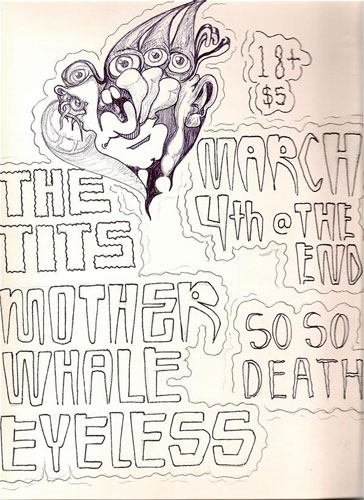 18+
$5
MARCH
4th @ THE
END
THE
TITS
MOTHER
WHALE
EYELESS
SO SO
DEATH